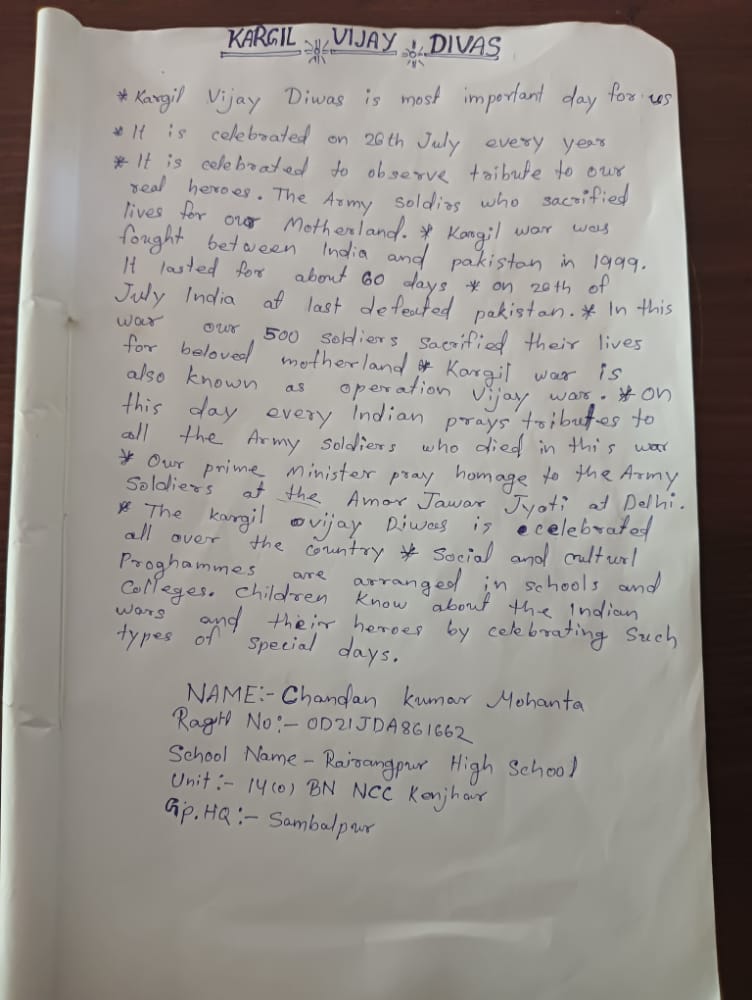 KARGIL VIJAY DIVAS
* Kargil Vijay Diwas is most important day for us
* It is celebrated on 26th July every year
* It is celebrated to observe tribute to our
real heroes. The Army soldirs who sacrified
lives for our Motherland. * Kargil war was
fought between India and pakistan in 1999.
It lasted for about 60 days * on 26th of
July India at last defeated pakistan. * In this
war our 500 soldiers sacrified their lives
for beloved motherland * Kargil war is
also known as operation vijay war. * on
this day every Indian prays tributes to
all the Army soldiers who died in this war
* Our prime minister pray homage to the Army
Soldiers at the Amar Jawar Jyoti at Delhi.
* The kargil vijay Diwas is celebrated
all over the country * Social and culturl
Proghammes are arranged in schools and
Colleges. children know about the Indian
wars and their heroes by celebrating such
types of special days.
NAME:- Chandan kumar Mohanta
No:- OD21JDA861662
School Name - Rairangpur High School
Unit:- 14(O) BN NCC Kenjhar
Gp.HQ:- Sambalpur